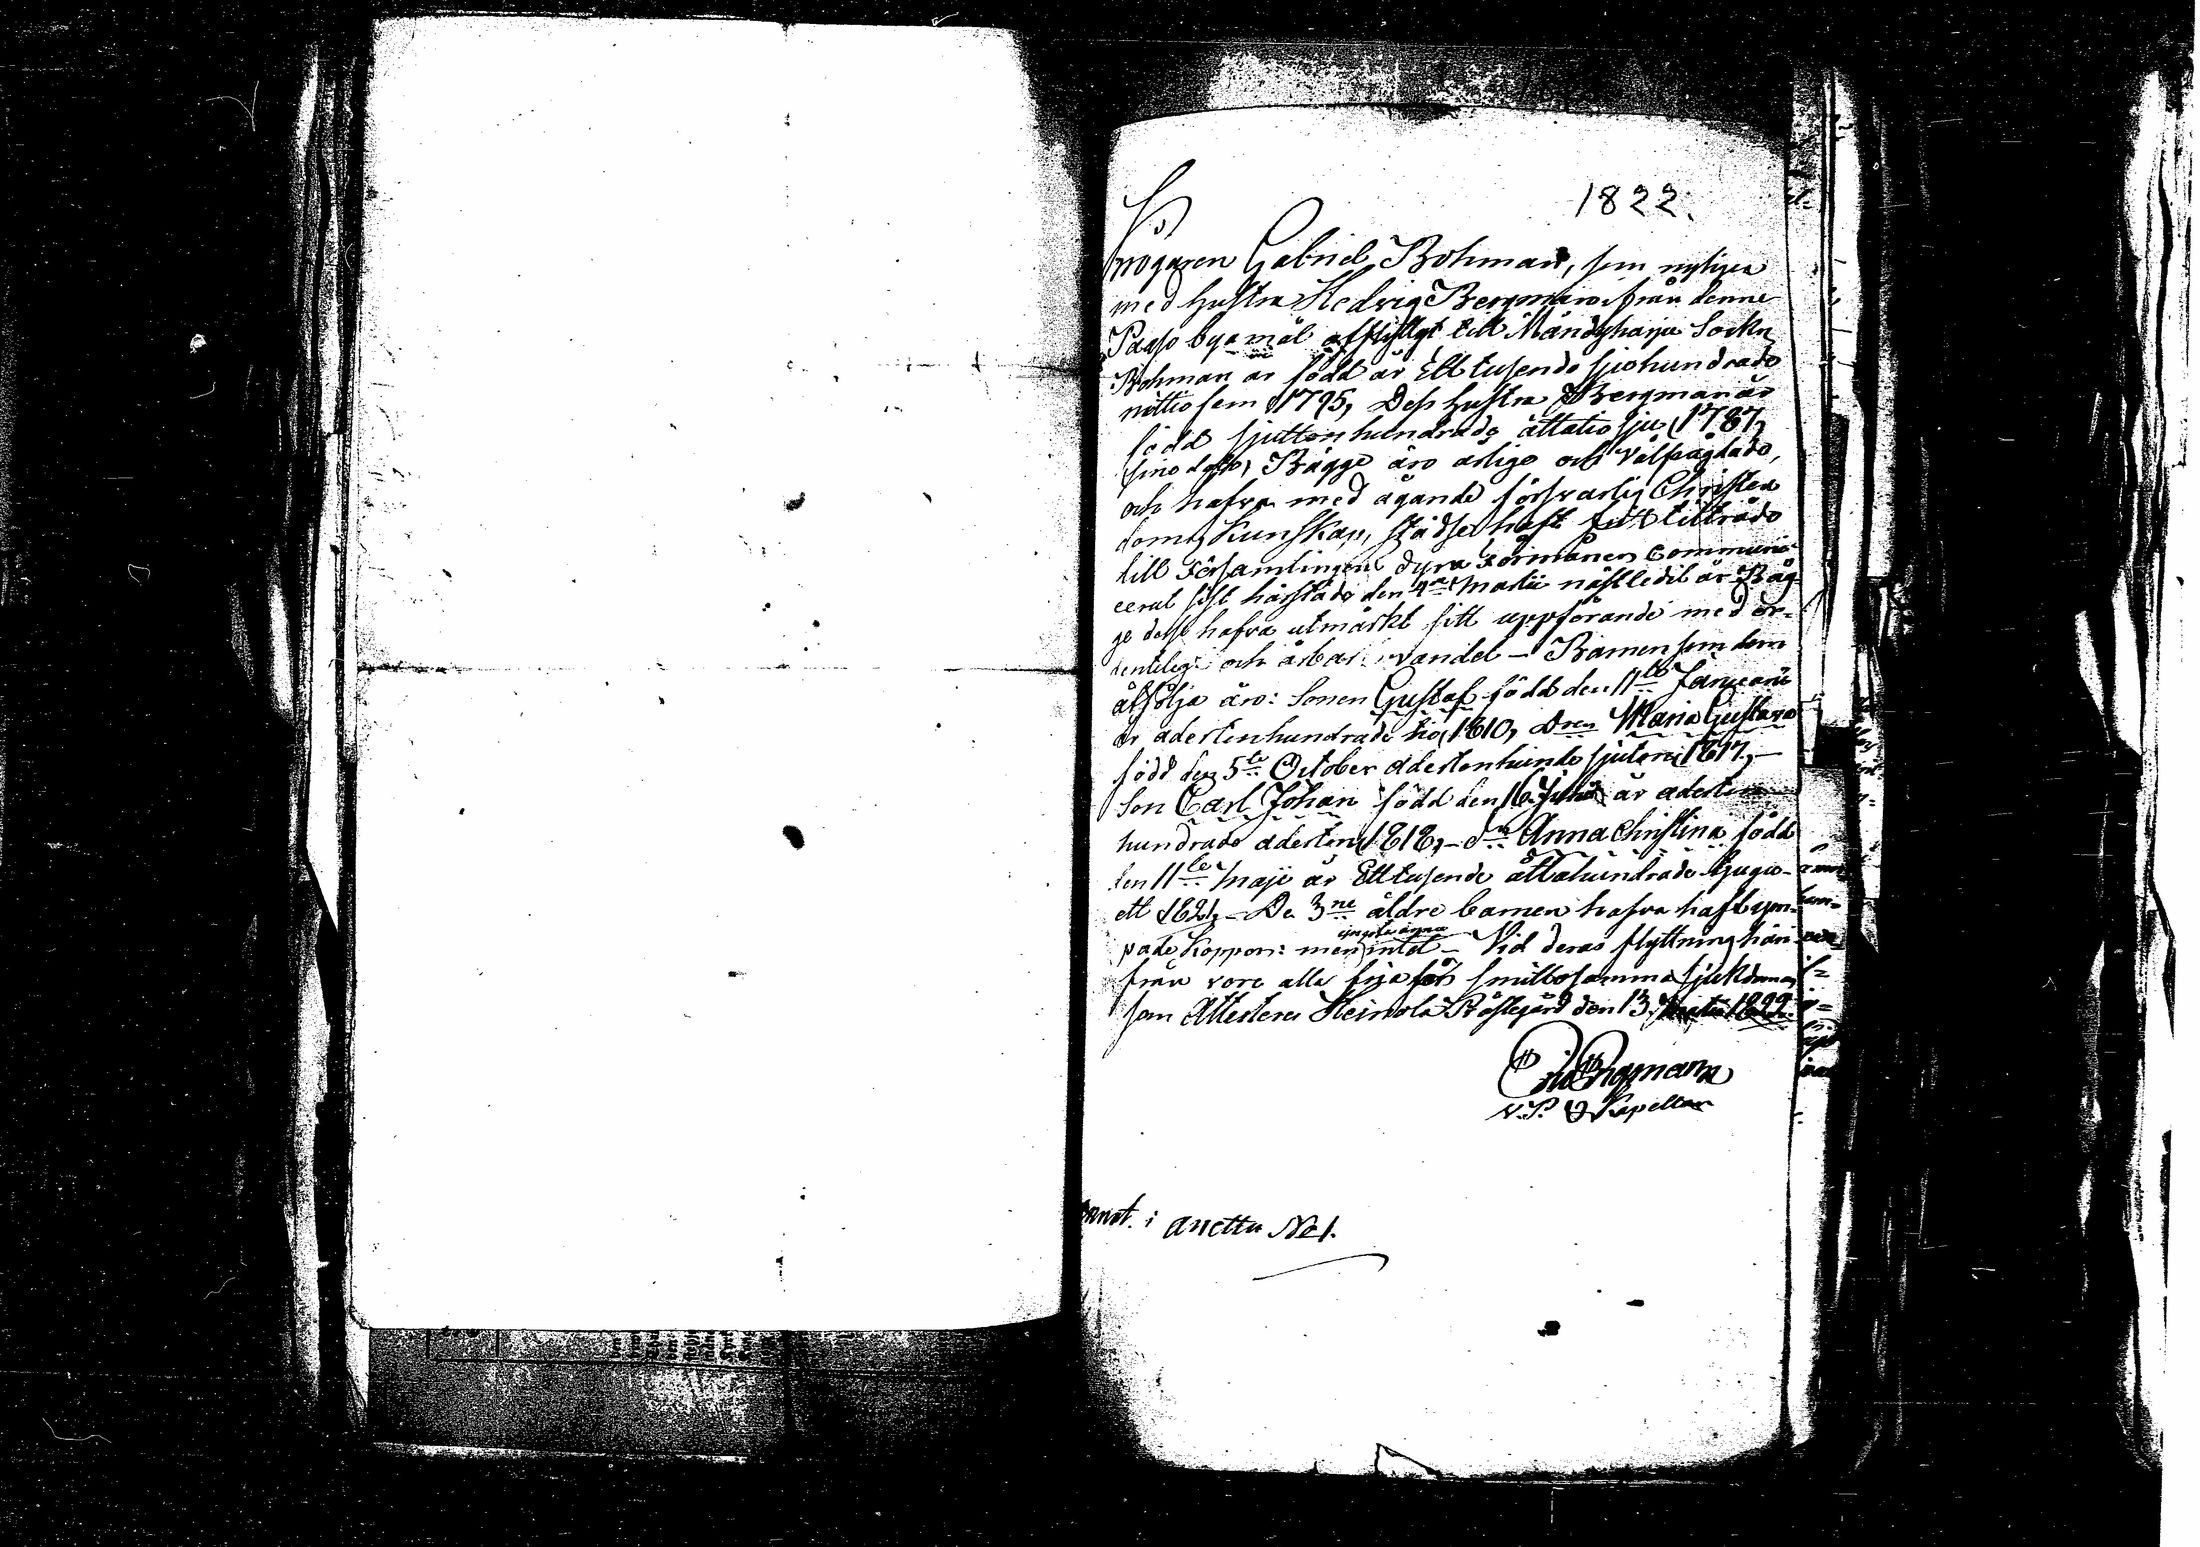 1822.
Krogaren Gabriel Bohman, som nyligen
med hustru Hedvig Bergman från denne
Paaso byamål afflyttgt till Mändyharju Sockn
Bohman är född år Ett tusende sjuhundrade
nittiofem (1795) Dess hustru Bergman är
född sjuttonhundrade åttatio sju (1787)
Bägge äro ärlige och välfrägdade,
och hafva med ägande försvarlig Christen
doms Kunskap, städse haft fritt tillträde
till Församlingens dyra Förmåner Communi-
cerat sist härstäds den 4de Martii nästledit år Bäg-
ge desse hafva utmärkt sitt uppförande med or-
dentelig och ärbar vandel – Barnen som dem
åtfölja äro: Sonen Gustaf född den 11te Januarii
år adertonhundrade tio (1810) Dren Maria Gustava
född den 5te October adertonhundr sjuton (1817) –
Son Carl Johan född den 16 Junii år aderton
hundrade aderton (1818) – dr Anna Christina född
den 11te Maji år Ett tusende åttahundrade tjugu-
ett (1821) – De 3ne äldre barnen hafva haft ym-
pade Koppor: men yngsta Anna intet – Vid deras flyttning här-
ifrån voro alla frija från smittosamma sjukdomar
som Attesteras Heinola Prästegård den 13 Martii 1822.
Eric Bergmann
V.P. & Kapellan
annot. i
anettu No 1.